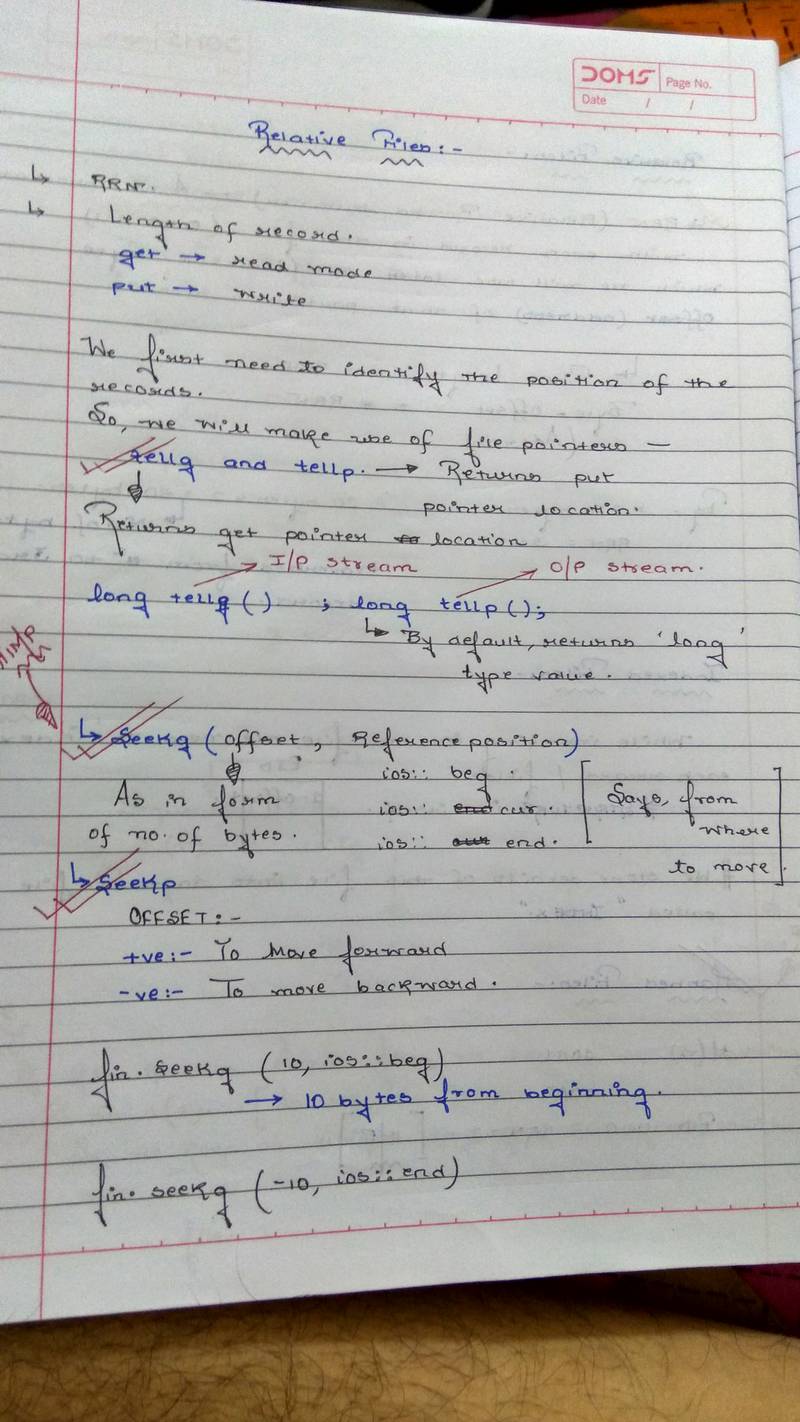 DOMS
Page No.
Date / /
Relative Files:-
↳ RRN.
↳ Length of record.
get → read mode
put → write
We first need to identify the position of the
records.
So, we will make use of file pointers —
tellg and tellp. → Returns put
pointer location.
Returns get pointer location
I/P stream
O/P stream.
long tellg() ; long tellp();
↳ By default, returns 'long'
type value.
↳ Seekg (offset, Reference position)
ios:: beg.
As in form
ios:: cur.
[Says, from
of no. of bytes.
ios:: end.
where
to move].
↳ Seekp
OFFSET:-
+ve:- To Move forward
-ve:- To move backward.
fin. seekg (10, ios::beg)
→ 10 bytes from beginning.
fin. seekg (-10, ios::end)